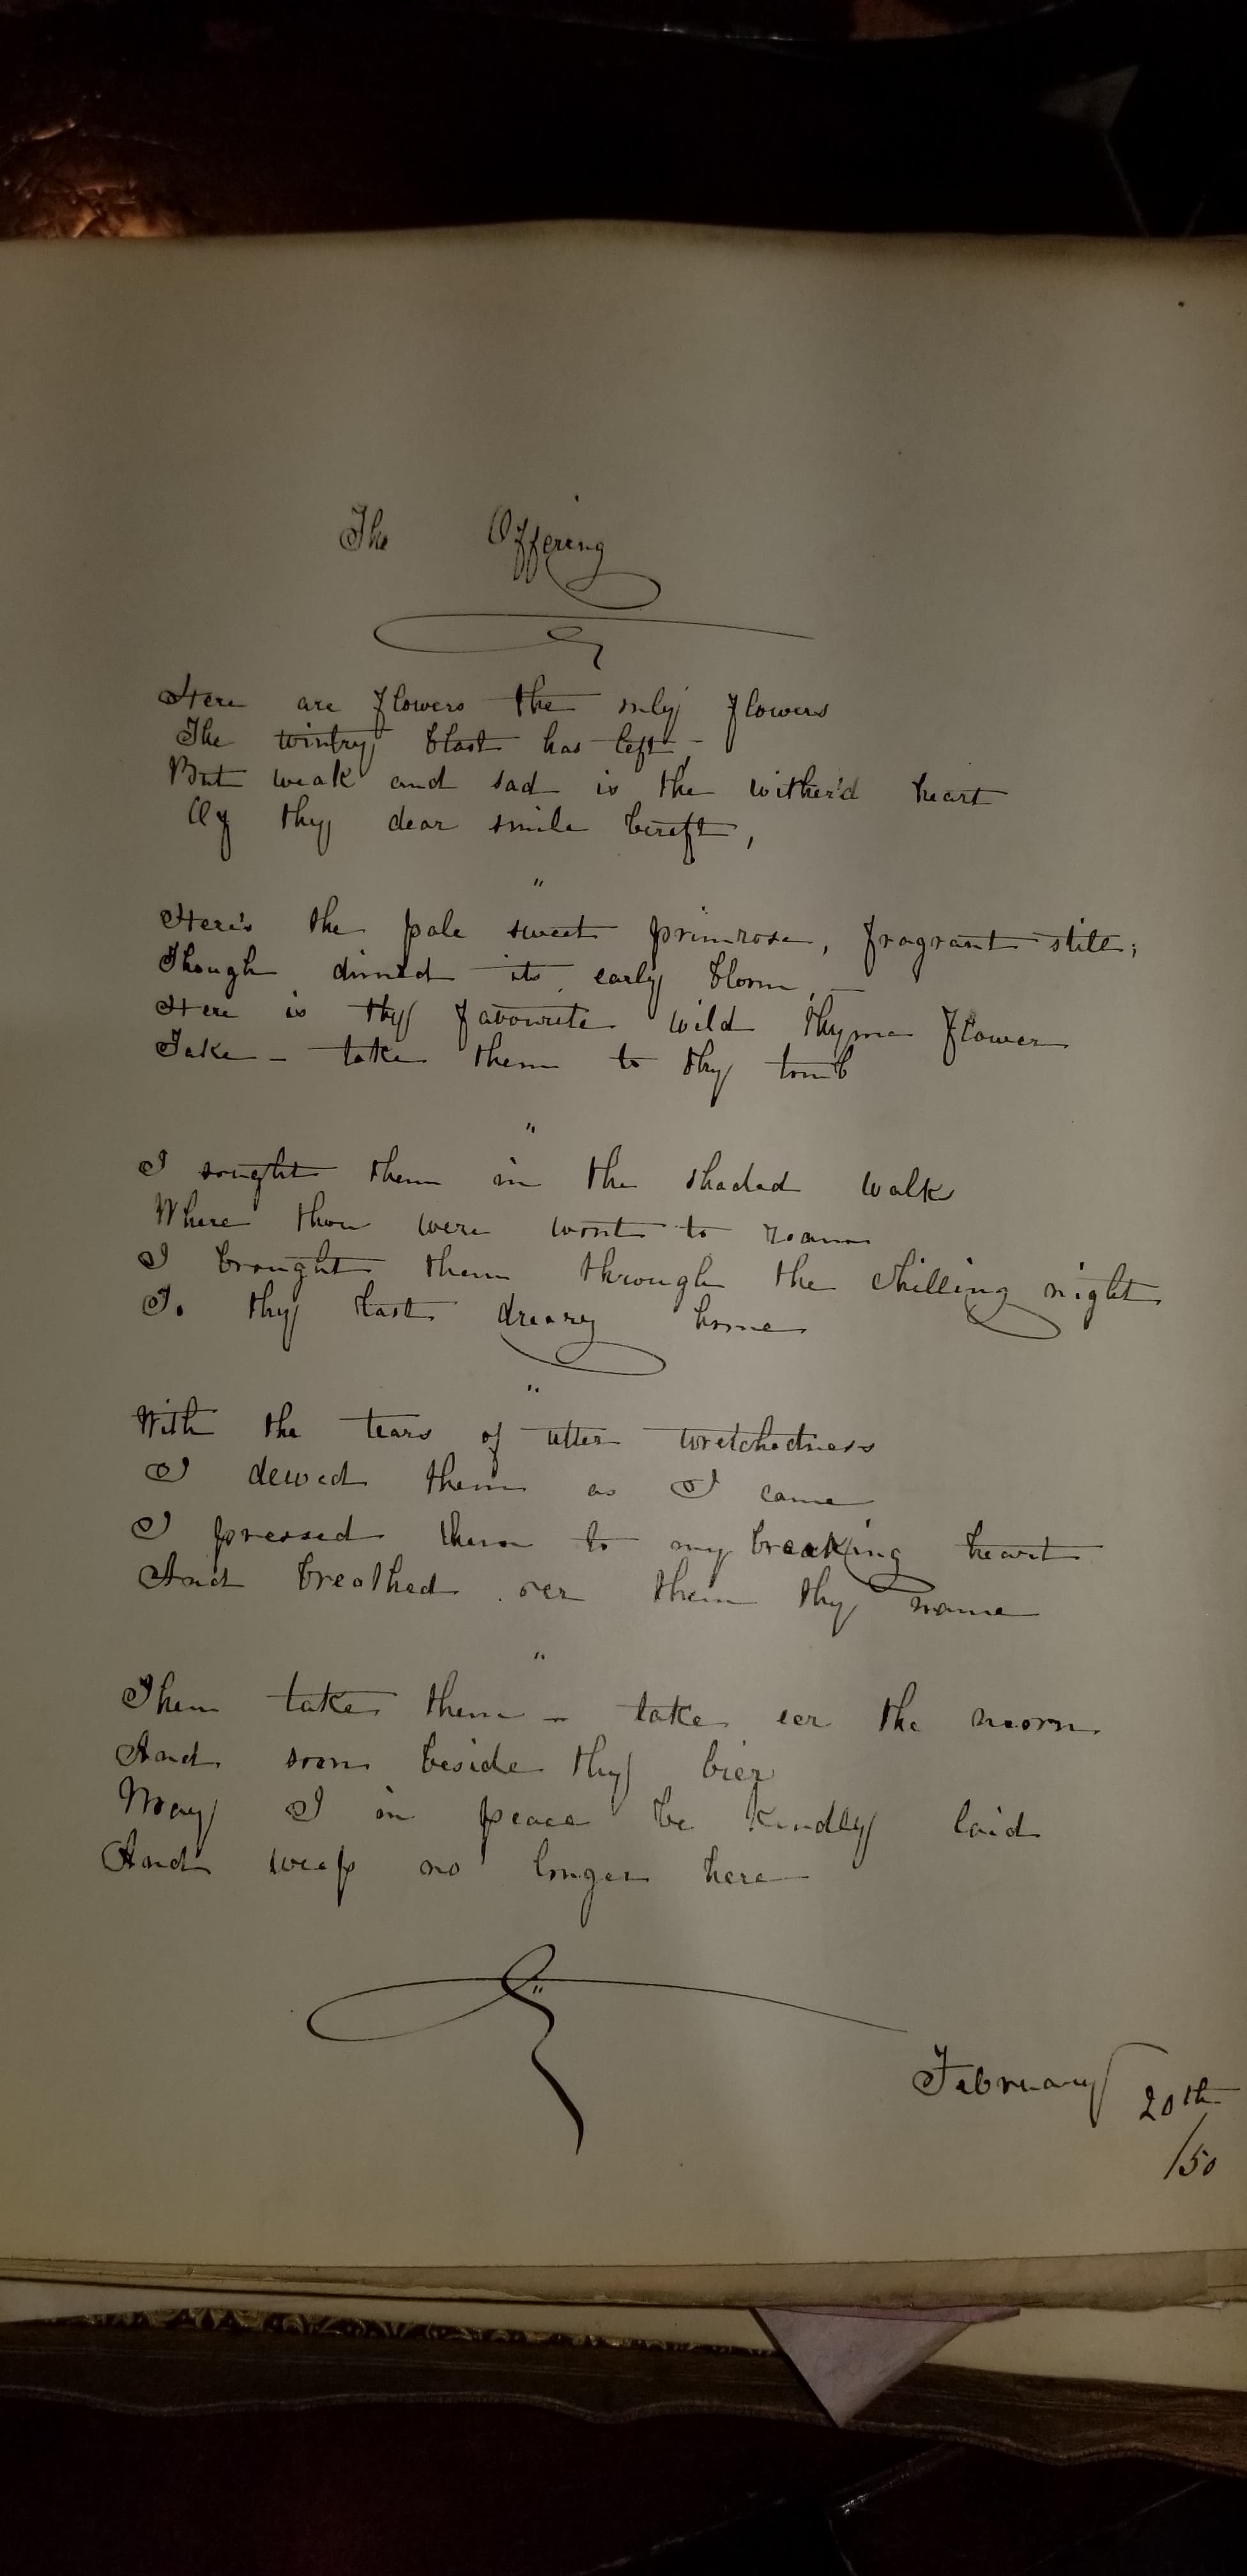 The Offering
Here are flowers the only flowers
The wintry blast has left -
But weak and sad is the wither'd heart
Of thy dear smile bereft,
"
Here's the pale sweet primrose, fragrant still;
Though dim'd its early bloom, -
Here is thy favourite wild thyme flower
Take - take them to thy tomb
"
I sought them in the shaded walk
Where thou were wont to roam
I brought them through the chilling night
To thy last dreary home
"
With the tears of utter wretchedness
I dewed them as I came
I pressed them to my breaking heart
And breathed oer them thy name
"
Then take them - take eer the morn
And soon beside thy bier
May I in peace be kindly laid
And weep no longer here
"
February 20th
/50